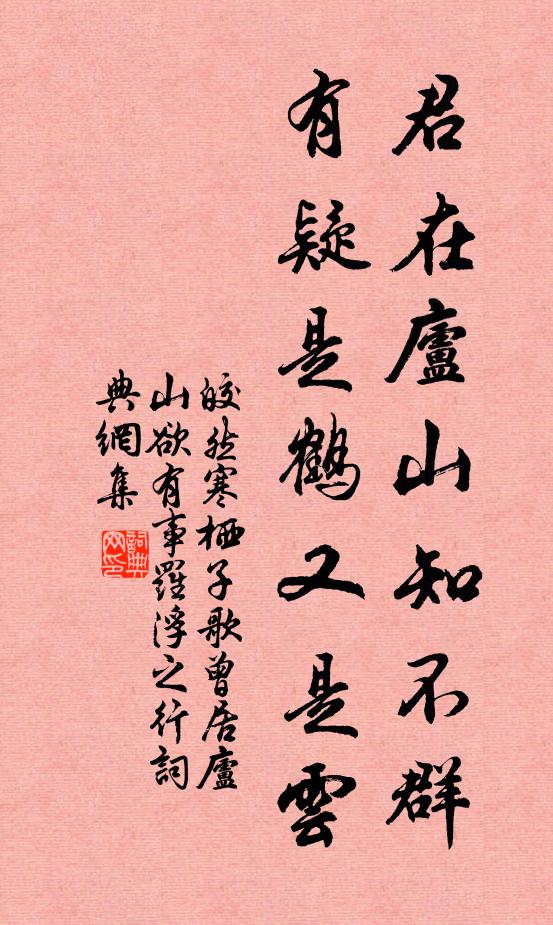 君在廬山知不群
有疑是鶴又是雲
皎然寒栖子歌曾居廬
山欲有事羅浮之行詞
典網集
詞典
网印